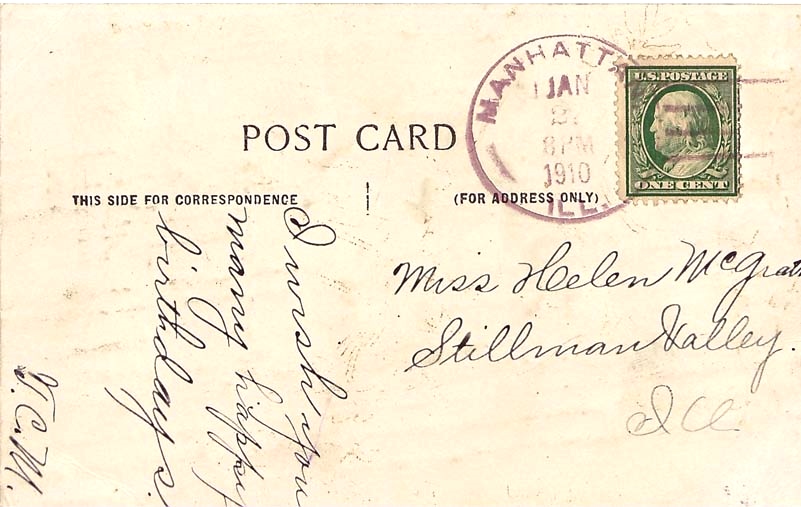 MANHATTA
JAN
2
8 PM
1910
ILL.
U.S. POSTAGE
ONE CENT
POST CARD
THIS SIDE FOR CORRESPONDENCE
(FOR ADDRESS ONLY)
I wish you
many happy
birthdays.
Miss Helen McGrath
Stillman Valley.
Ill